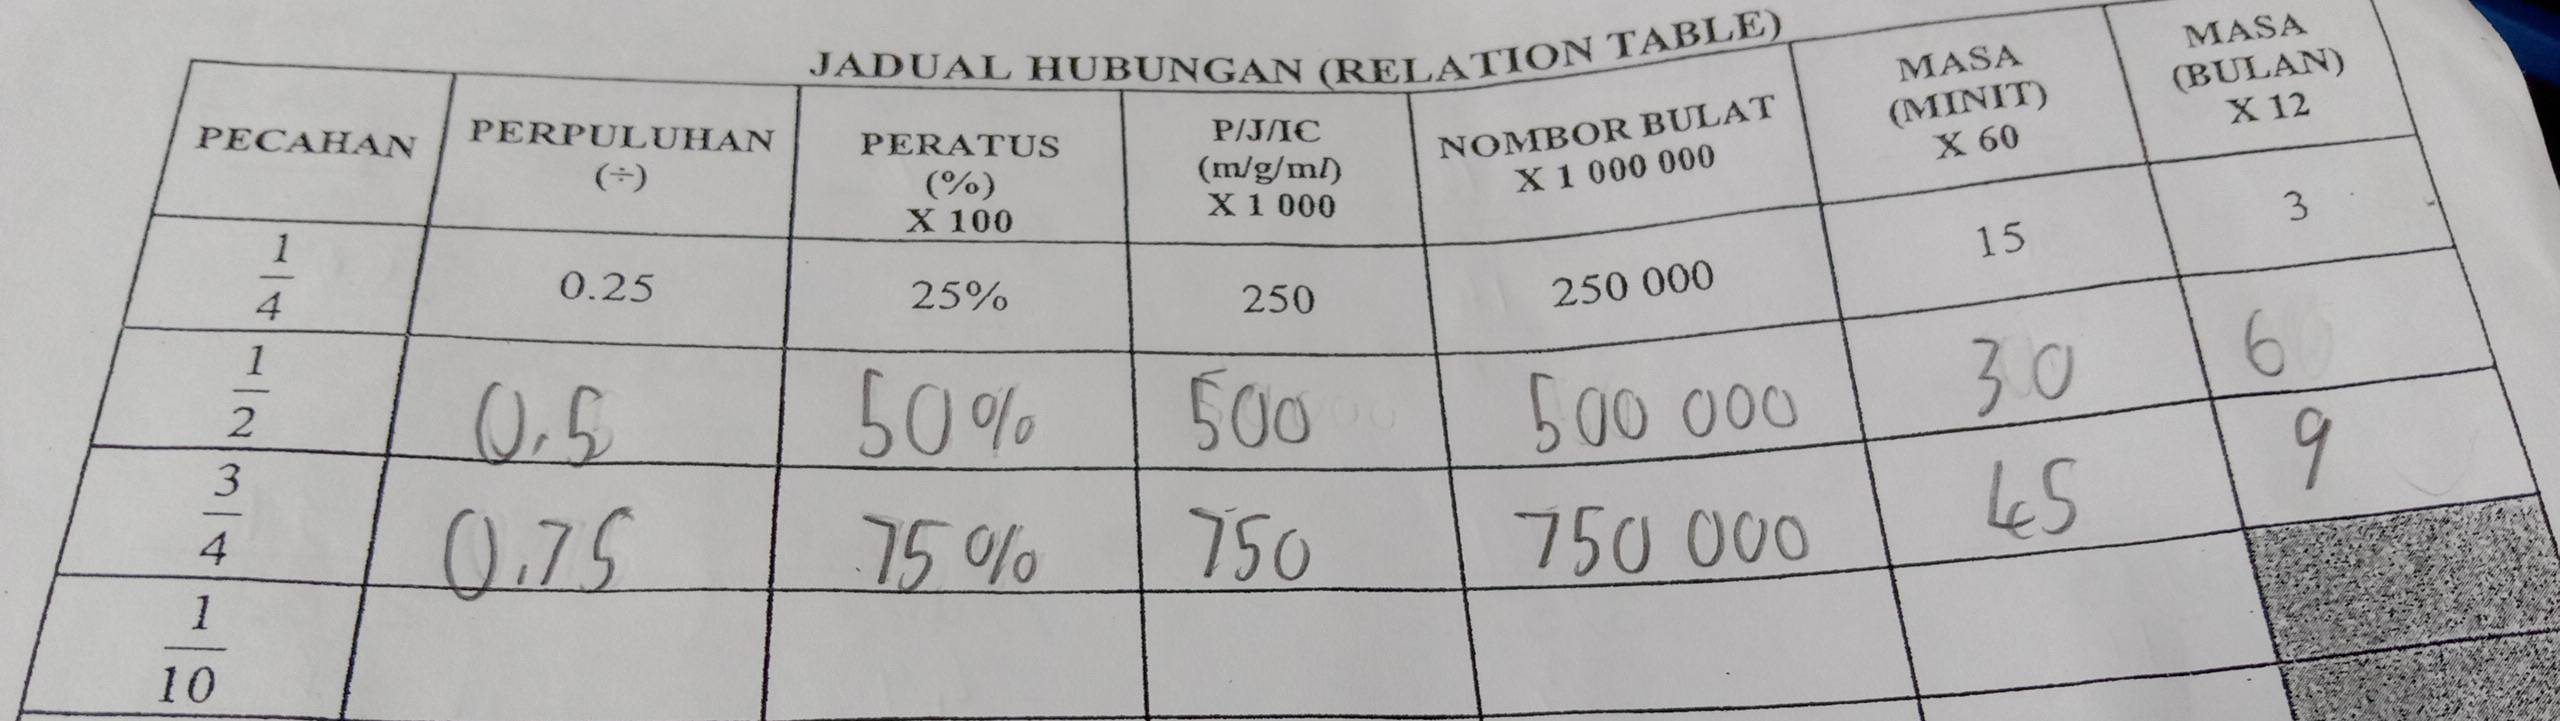 JADUAL HUBUNGAN (RELATION TABLE)
PECAHAN
PERPULUHAN
(÷)
PERATUS
(%)
X 100
P/J/IC
(m/g/ml)
X 1 000
NOMBOR BULAT
X 1 000 000
MASA
(MINIT)
X 60
MASA
(BULAN)
X 12
1/4 0.25 25% 250 250 000 15 3
1/2 0.5 50% 500 500 000 30 6
3/4 0.75 75% 750 750 000 45 9
1/10